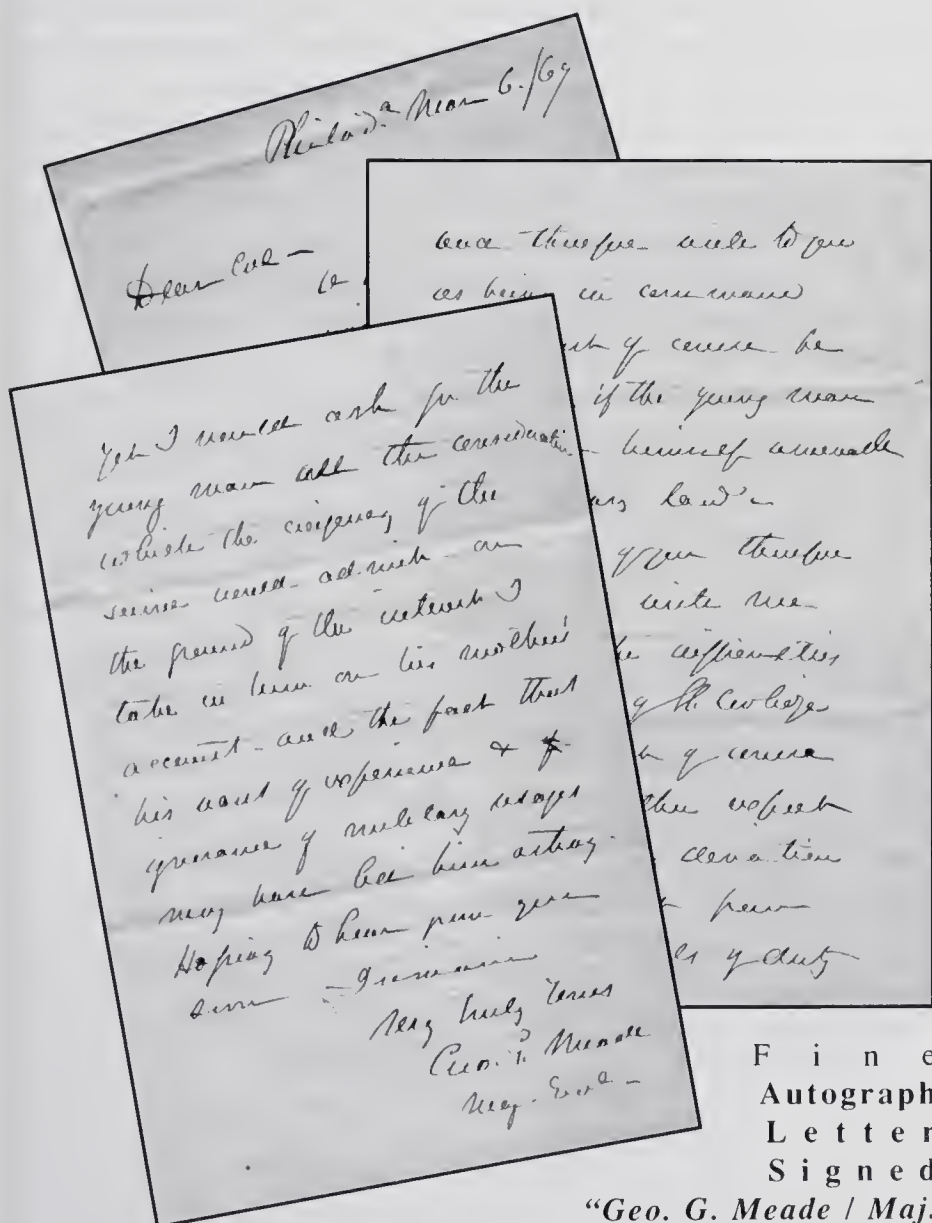 Philad.ª Mar 6./69
Dear Col —
and therefore write to you
as being in command
of course be
if the young man
himself amenable
law's
you therefore
write me
of course
the respect
deviation
from
of duty
Yet I would ask for the
young man all the consideration
which the exigency of the
service would admit on
the ground of the interest I
take in him on his mother's
account — and the fact that
his want of experience &
ignorance of military usages
may have led him astray.
Hoping to hear from you
soon — I remain
Very truly Yours
Geo. G. Meade
Maj. Genl —
Fine
Autograph
Letter
Signed
“Geo. G. Meade / Maj.